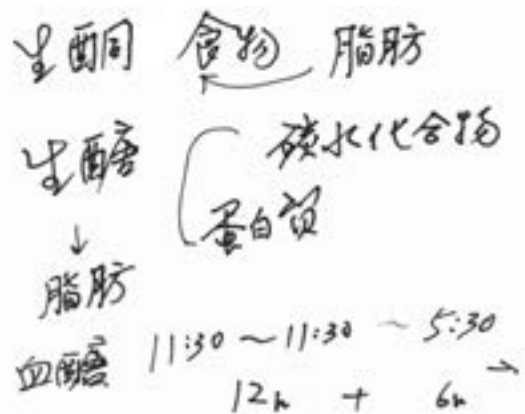 生酮 食物 脂肪
生醣 碳水化合物
蛋白质
↓
脂肪
血醣 11:30 ~ 11:30 ~ 5:30
12h + 6h →